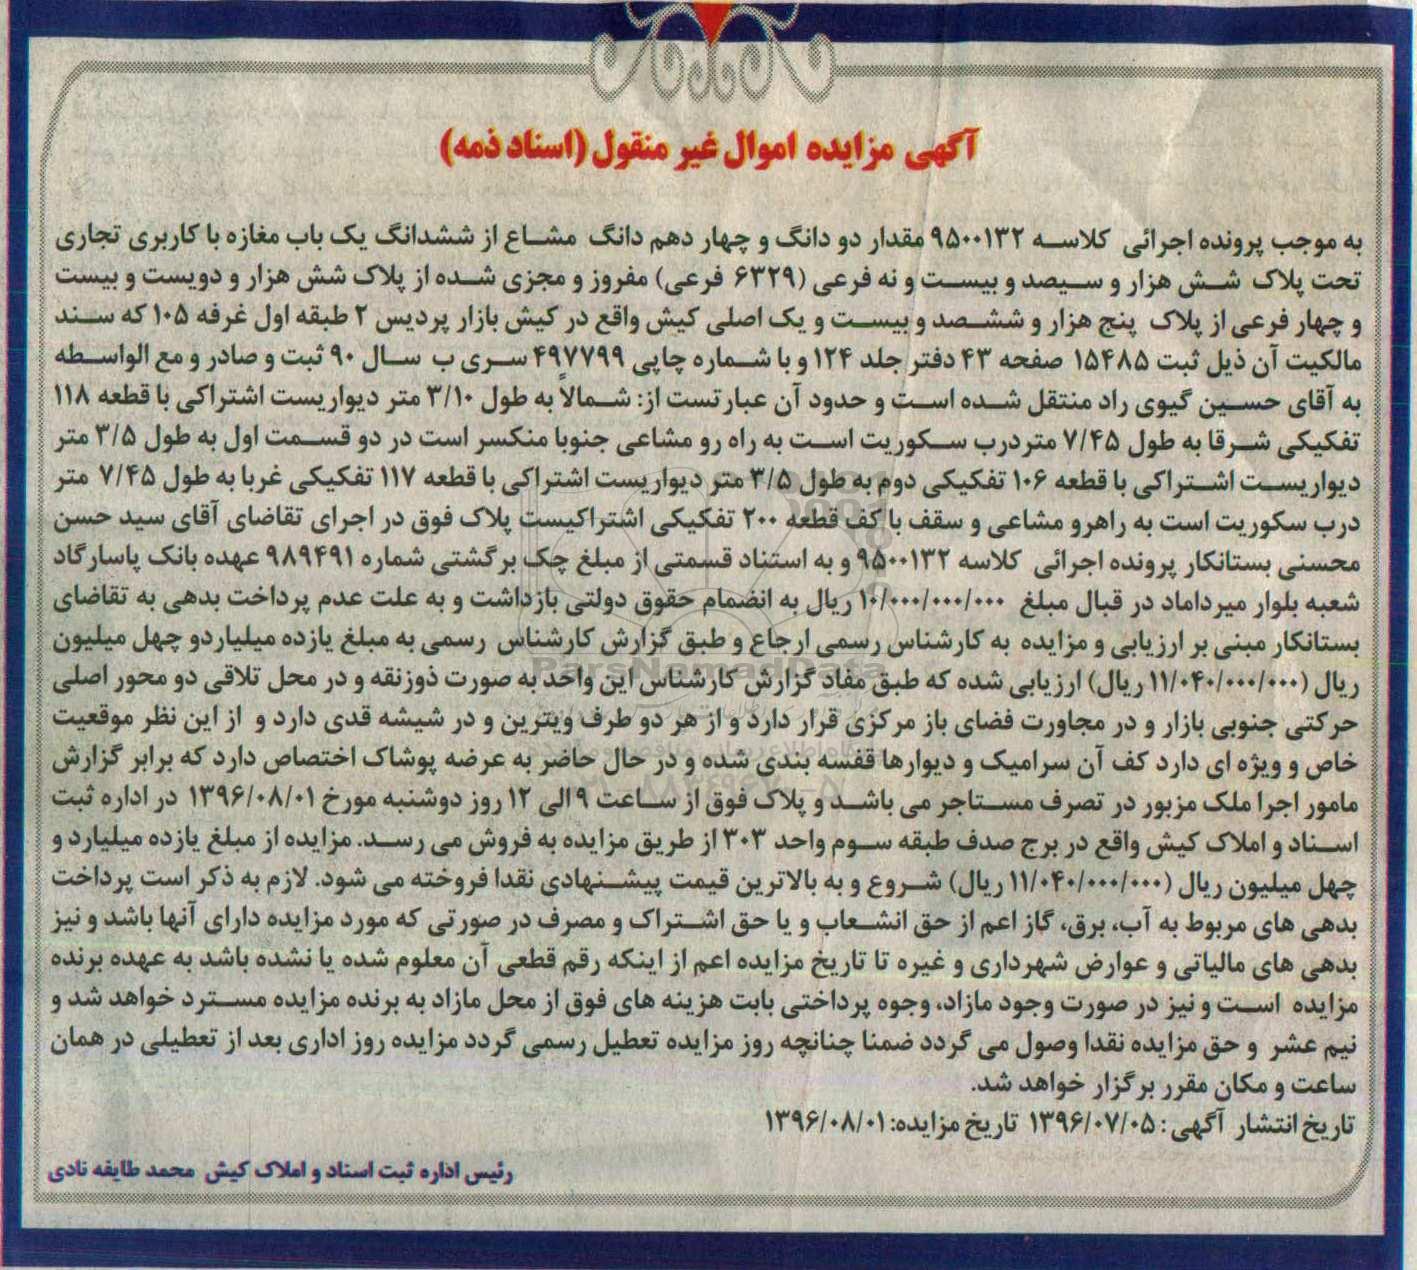 آگهی مزایده اموال غیر منقول (اسناد ذمه)
به موجب پرونده اجرائی کلاسه ۹۵۰۰۱۳۲ مقدار دو دانگ و چهار دهم دانگ مشاع از ششدانگ یک باب مغازه با کاربری تجاری
تحت پلاک شش هزار و سیصد و بیست و نه فرعی (۶۳۲۹ فرعی) مفروز و مجزی شده از پلاک شش هزار و دویست و بیست
و چهار فرعی از پلاک پنج هزار و ششصد و بیست و یک اصلی کیش واقع در کیش بازار پردیس ۲ طبقه اول غرفه ۱۰۵ که سند
مالکیت آن ذیل ثبت ۱۵۴۸۵ صفحه ۴۳ دفتر جلد ۱۲۴ و با شماره چاپی ۴۹۷۷۹۹ سری ب سال ۹۰ ثبت و صادر و مع الواسطه
به آقای حسین گیوی راد منتقل شده است و حدود آن عبارتست از: شمالاً به طول ۳/۱۰ متر دیواریست اشتراکی با قطعه ۱۱۸
تفکیکی شرقا به طول ۷/۴۵ متردرب سکوریت است به راه رو مشاعی جنوبا منکسر است در دو قسمت اول به طول ۳/۵ متر
دیواریست اشتراکی با قطعه ۱۰۶ تفکیکی دوم به طول ۳/۵ متر دیواریست اشتراکی با قطعه ۱۱۷ تفکیکی غربا به طول ۷/۴۵ متر
درب سکوریت است به راهرو مشاعی و سقف با کف قطعه ۲۰۰ تفکیکی اشتراکیست پلاک فوق در اجرای تقاضای آقای سید حسن
محسنی بستانکار پرونده اجرائی کلاسه ۹۵۰۰۱۳۲ و به استناد قسمتی از مبلغ چک برگشتی شماره ۹۸۹۴۹۱ عهده بانک پاسارگاد
شعبه بلوار میرداماد در قبال مبلغ ۱۰/۰۰۰/۰۰۰/۰۰۰ ریال به انضمام حقوق دولتی بازداشت و به علت عدم پرداخت بدهی به تقاضای
بستانکار مبنی بر ارزیابی و مزایده به کارشناس رسمی ارجاع و طبق گزارش کارشناس رسمی به مبلغ یازده میلیاردو چهل میلیون
ریال (۱۱/۰۴۰/۰۰۰/۰۰۰ ریال) ارزیابی شده که طبق مفاد گزارش کارشناس این واحد به صورت ذوزنقه و در محل تلاقی دو محور اصلی
حرکتی جنوبی بازار و در مجاورت فضای باز مرکزی قرار دارد و از هر دو طرف ویترین و در شیشه قدی دارد و از این نظر موقعیت
خاص و ویژه ای دارد کف آن سرامیک و دیوارها قفسه بندی شده و در حال حاضر به عرضه پوشاک اختصاص دارد که برابر گزارش
مامور اجرا ملک مزبور در تصرف مستاجر می باشد و پلاک فوق از ساعت ۹ الی ۱۲ روز دوشنبه مورخ ۱۳۹۶/۰۸/۰۱ در اداره ثبت
اسناد و املاک کیش واقع در برج صدف طبقه سوم واحد ۳۰۳ از طریق مزایده به فروش می رسد. مزایده از مبلغ یازده میلیارد و
چهل میلیون ریال (۱۱/۰۴۰/۰۰۰/۰۰۰ ریال) شروع و به بالاترین قیمت پیشنهادی نقدا فروخته می شود. لازم به ذکر است پرداخت
بدهی های مربوط به آب، برق، گاز اعم از حق انشعاب و یا حق اشتراک و مصرف در صورتی که مورد مزایده دارای آنها باشد و نیز
بدهی های مالیاتی و عوارض شهرداری و غیره تا تاریخ مزایده اعم از اینکه رقم قطعی آن معلوم شده یا نشده باشد به عهده برنده
مزایده است و نیز در صورت وجود مازاد، وجوه پرداختی بابت هزینه های فوق از محل مازاد به برنده مزایده مسترد خواهد شد و
نیم عشر و حق مزایده نقدا وصول می گردد ضمنا چنانچه روز مزایده تعطیل رسمی گردد مزایده روز اداری بعد از تعطیلی در همان
ساعت و مکان مقرر برگزار خواهد شد.
تاریخ انتشار آگهی: ۱۳۹۶/۰۷/۰۵ تاریخ مزایده: ۱۳۹۶/۰۸/۰۱
رئیس اداره ثبت اسناد و املاک کیش محمد طایفه نادی
ParsNamadData